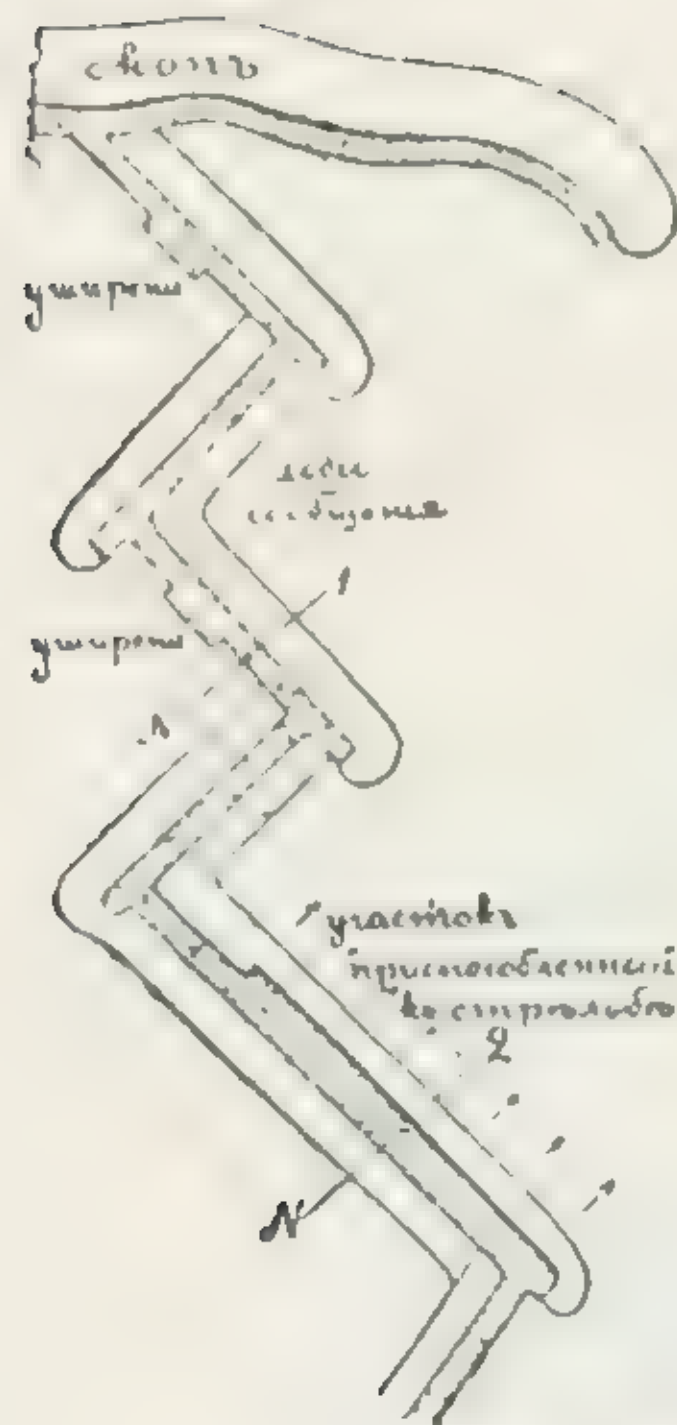 окопъ
уширени
сообщения
1
уширени
участокъ
приспособленный
къ стрѣльбѣ
2
N